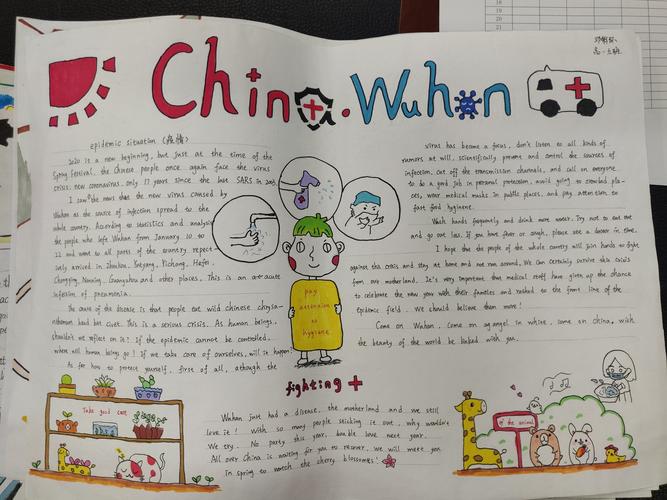 China.Wuhan
epidemic situation (疫情)
2020 is a new beginning, but just at the time of the
Spring Festival, the Chinese people once again face the virus
crisis, new coronavirus. Only 17 years since the last SARS in 2003
I saw the news that the new virus caused by
Wuhan as the source of infection spread to the
whole country. According to statistics and analysis
the people who left Wuhan from January 10 to
22 and went to all parts of the country
Yichang, Hefei,
Chongqing, Nanning, Guangzhou and other places. This is an
infection of pneumonia.
The cause of the disease is that people eat wild chinese
bat and civet. This is a serious crisis. As human beings,
shouldn't we reflect on it? If the epidemic cannot be controlled,
where will human beings go? If we take care of ourselves, will it happen?
As for how to protect yourself, first of all, although the
virus has become a focus, don't listen to all kinds of
rumors at will, scientifically prevent and control the sources of
infection, cut off the transmission channels, and call on everyone
to do a good job in personal protection, avoid going to crowded pla-
ces, wear medical masks in public places, and pay attention to
hygiene.
Wash hands frequently and drink more water. Try not to eat out
and go out less. If you have fever or cough, please see a doctor in time.
I hope that the people of the whole country will join hands to fight
against this crisis and stay at home and not run around. We can certainly survive this crisis
from our motherland. It's very important that medical staff have given up the chance
to celebrate the new year with their families and rushed to the front line of the
epidemic field. We should believe them!
Come on Wuhan, come on angel in white, come on china, wish
the beauty of the world be linked with you.
pay
attention
to
hygiene
fighting +
Wuhan just had a disease, the motherland and we still
love it! With so many people sticking it out, why wouldn't
we try. No party this year, double love next year.
All over China is waiting for you to recover, we will meet you
in spring to watch the cherry blossoms!
Take good care
of the animal